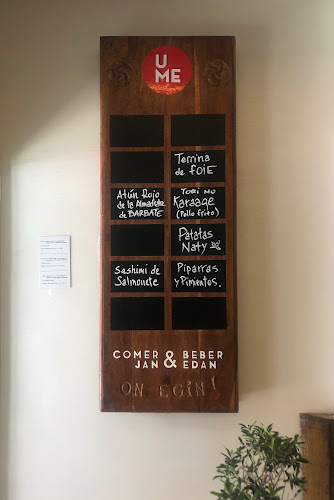 U
ME
Terrina
de FOIE
Atún Rojo
de la Almadraba
de BARBATE
TORI NO
Karaage
(Pollo frito)
Patatas
Naty
Sashimi de
Salmonete
Piparras
y Pimientos.
COMER & BEBER
JAN EDAN
ON EGIN!